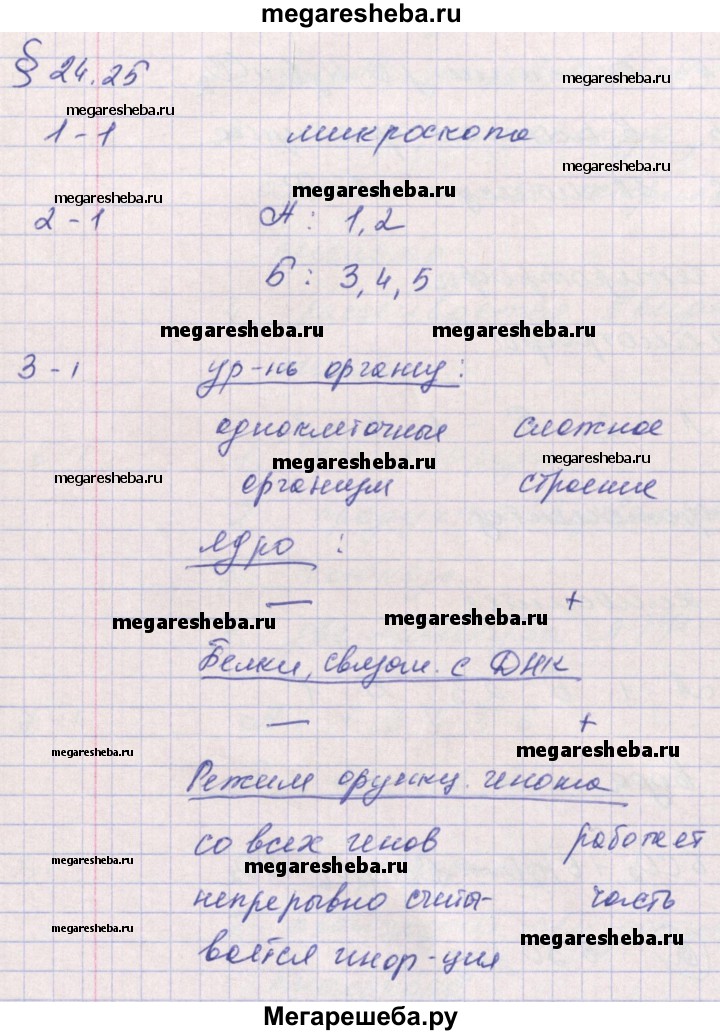 megaresheba.ru
§ 24.25
megaresheba.ru
megaresheba.ru
1-1 микроскопа
megaresheba.ru
megaresheba.ru
megaresheba.ru
2-1 А: 1,2
Б: 3,4,5
megaresheba.ru megaresheba.ru
3-1 ур-нь организ:
одноклеточные сложное
megaresheba.ru megaresheba.ru
megaresheba.ru организм строение
ядро :
— +
megaresheba.ru megaresheba.ru
Белки, связан. с ДНК
— +
megaresheba.ru megaresheba.ru
Режим функц. генома
со всех генов работает
megaresheba.ru megaresheba.ru
непрерывно считы- часть
megaresheba.ru megaresheba.ru
вается инфор-ция
Мегарешеба.ру